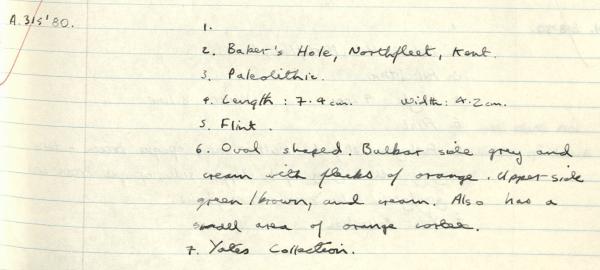 A.315'80.
1.
2. Baker's Hole, Northfleet, Kent.
3. Paleolithic.
4. Length : 7.4 cm. Width : 4.2 cm.
5. Flint.
6. Oval shaped. Bulbar side grey and
cream with flecks of orange. Upper side
green/brown, and cream. Also has a
small area of orange cortex.
7. Yates Collection.